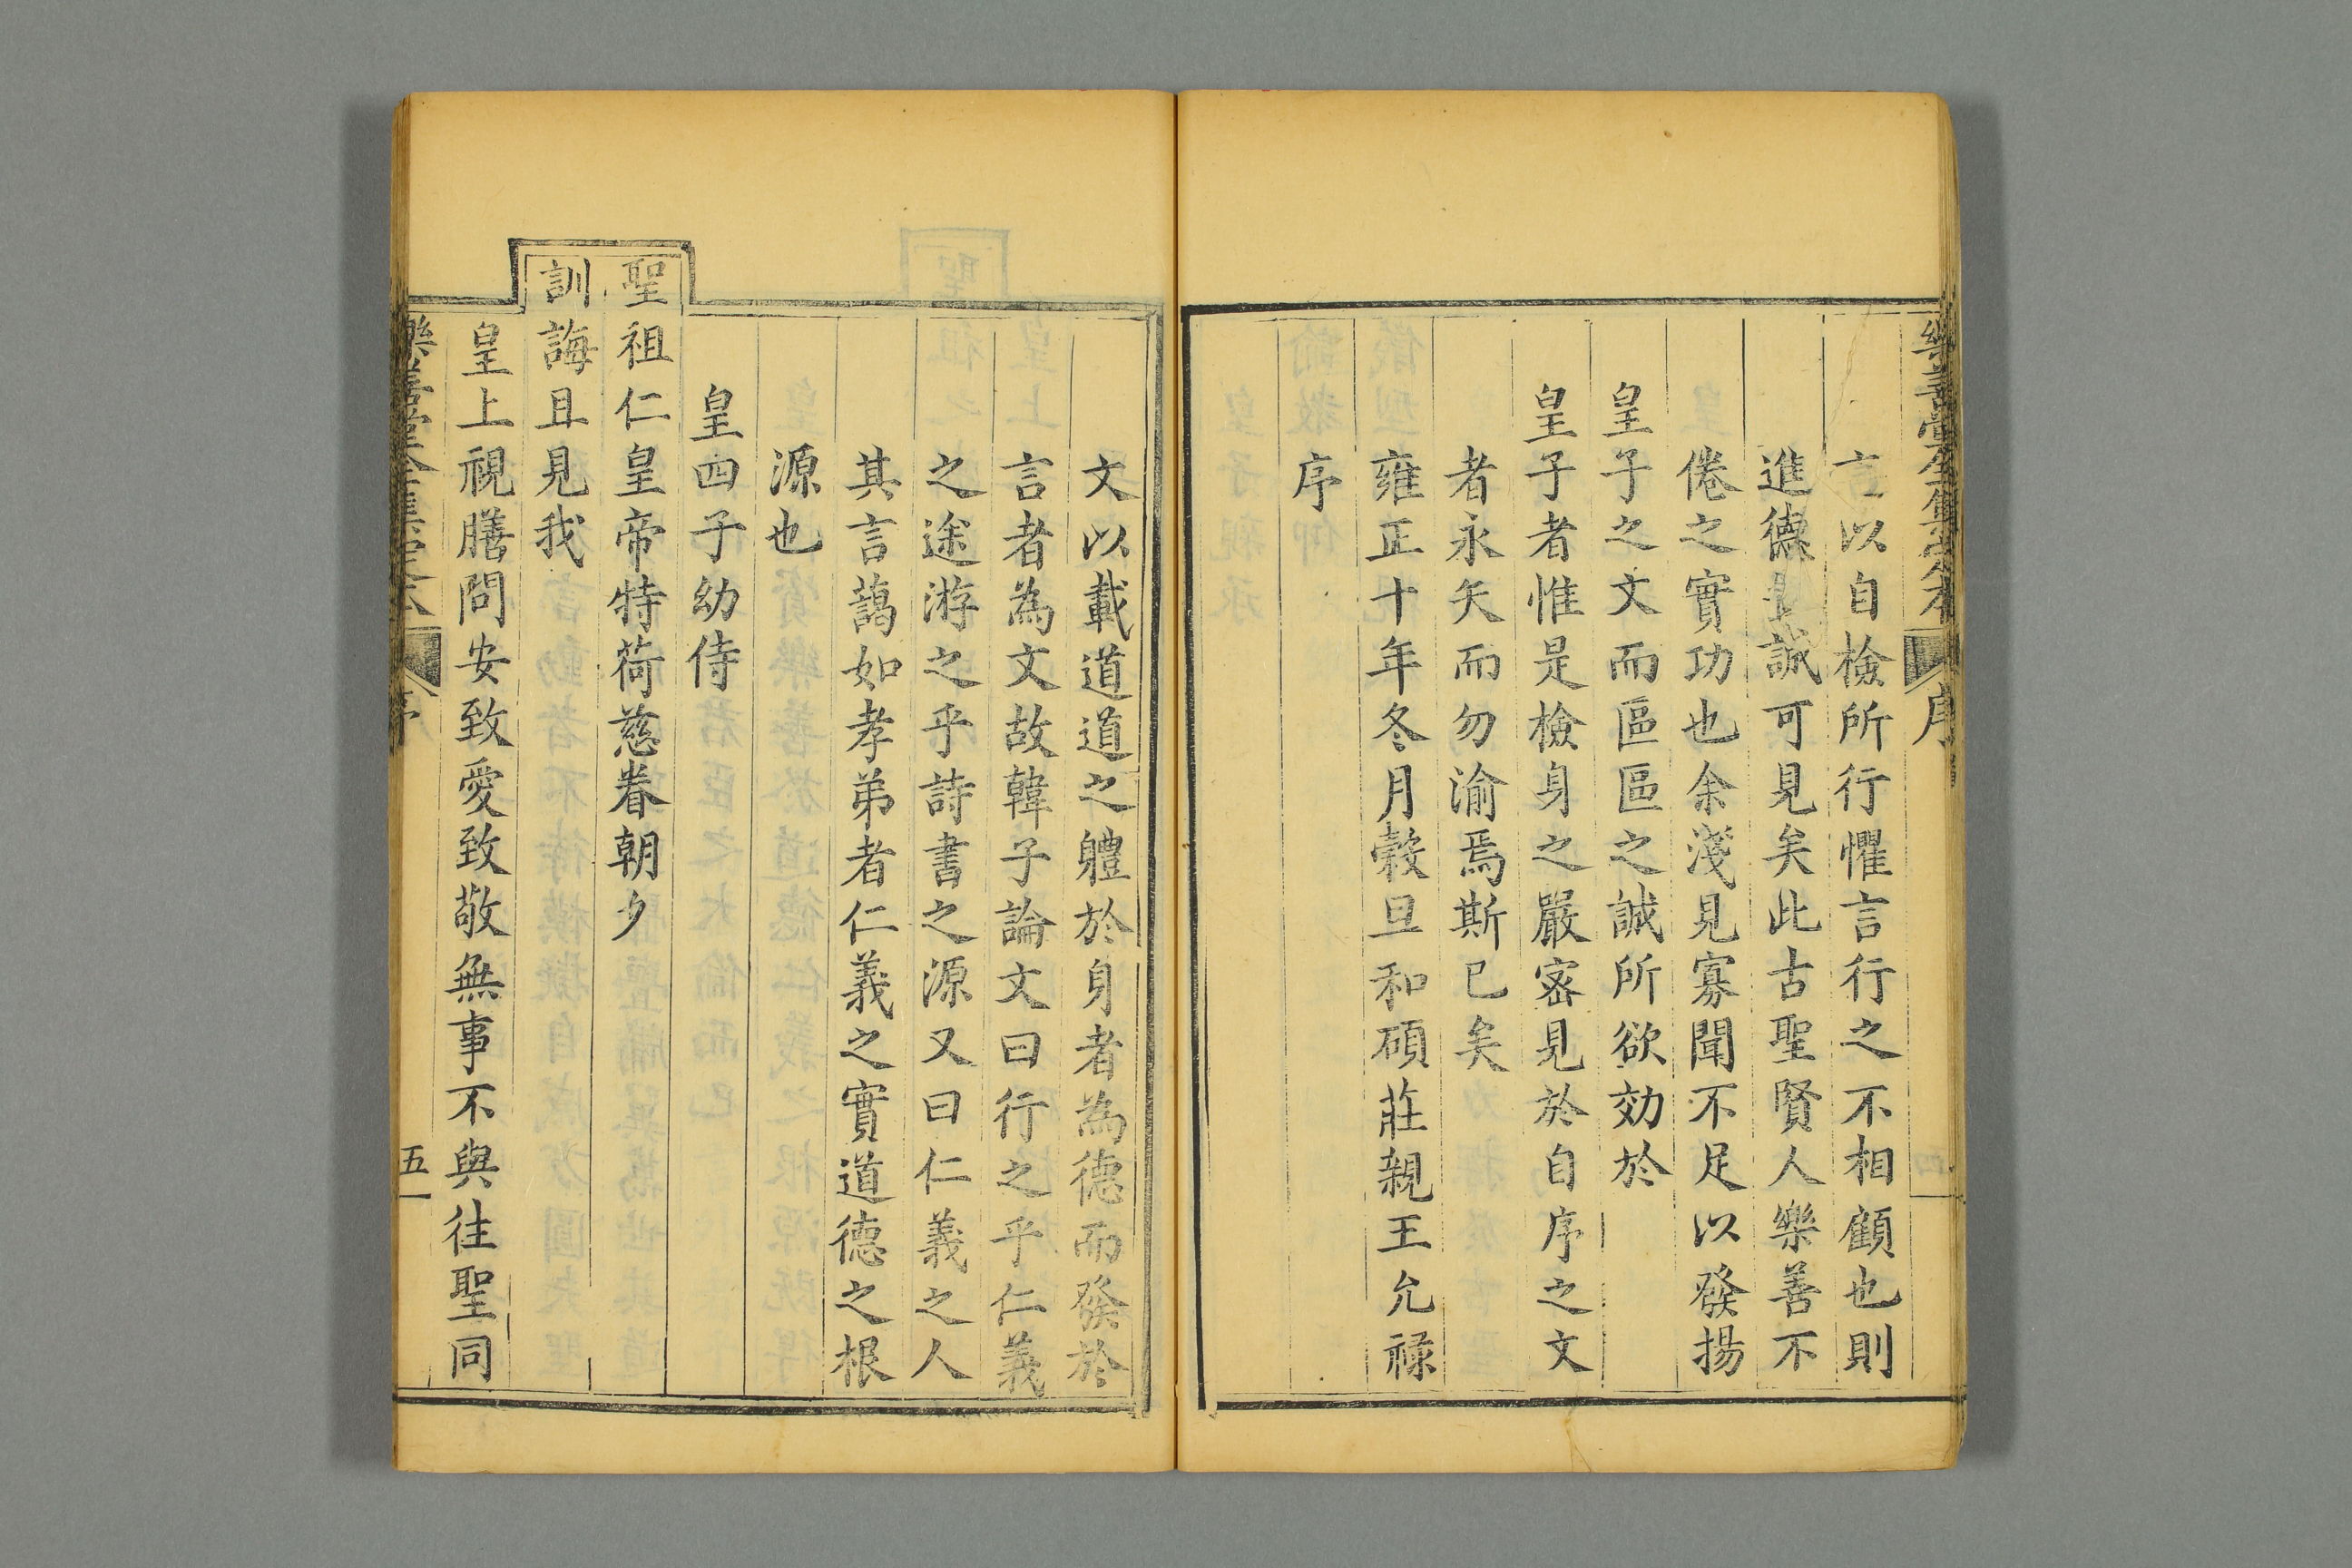 樂善堂全集定本 序
言以自檢所行懼言行之不相顧也則
進德誠可見矣此古聖賢人樂善不
倦之實功也余淺見寡聞不足以發揚
皇子之文而區區之誠所欲効於
皇子者惟是檢身之嚴密見於自序之文
者永矢而勿渝焉斯已矣
雍正十年冬月穀旦和碩莊親王允祿
序
文以載道道之體於身者為德而發於
言者為文故韓子論文曰行之乎仁義
之途游之乎詩書之源又曰仁義之人
其言藹如孝弟者仁義之實道德之根
源也
皇四子幼侍
聖祖仁皇帝特荷慈眷朝夕
訓誨且見我
皇上視膳問安致愛致敬無事不與往聖同
樂善堂全集定本 序 五